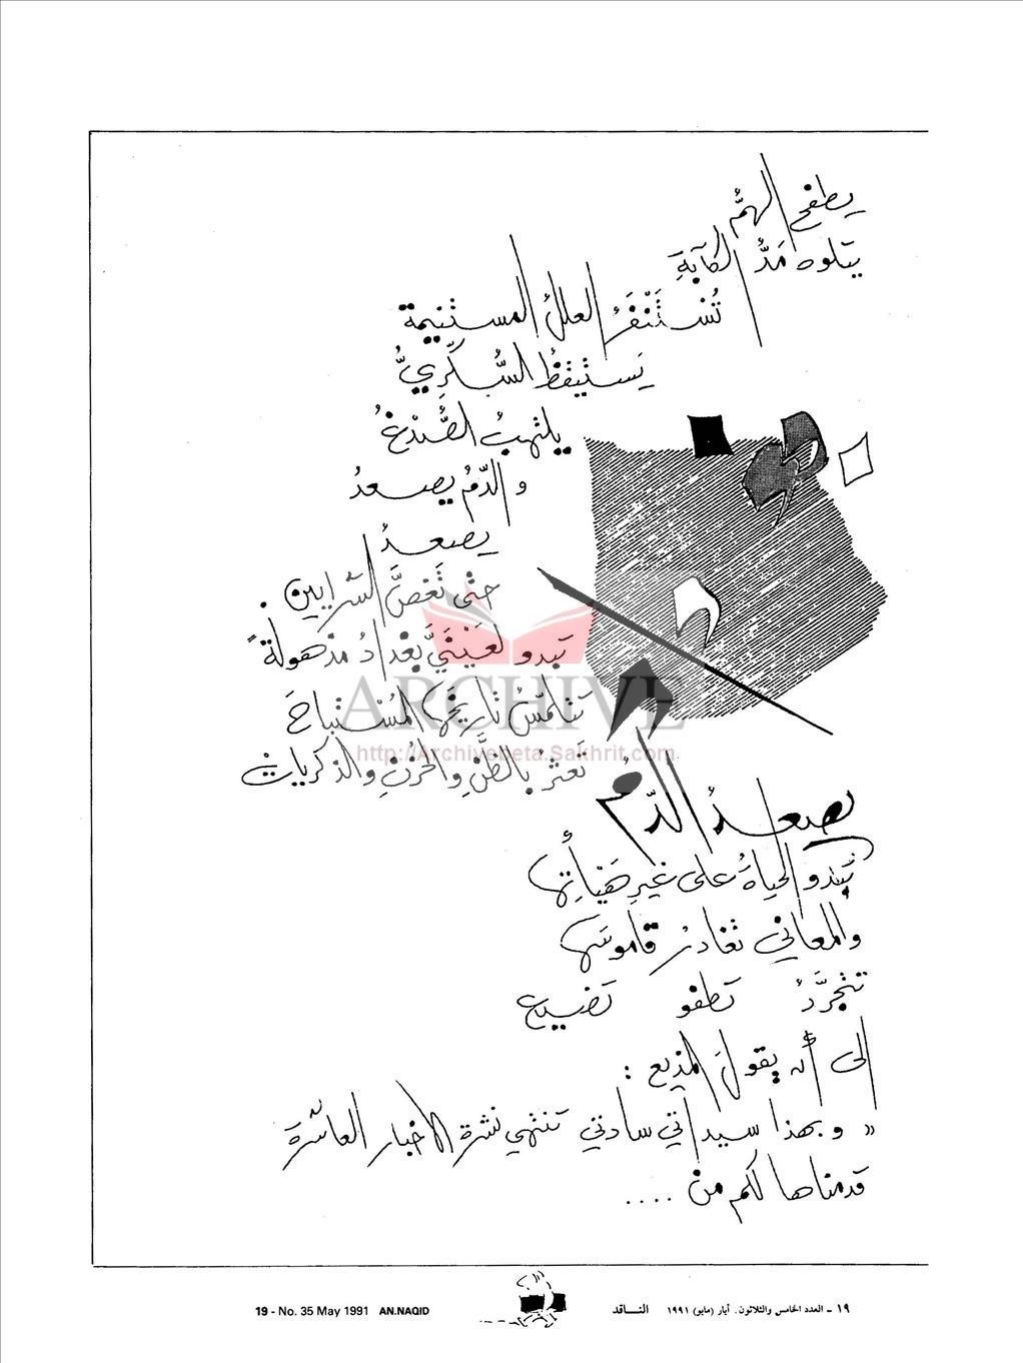 يطفح الهمُّ
يتلوه مَدُّ الكآبةِ
تُستَنْفَرُ العللُ المستنيمة
يَستيقظُ السُّكّريُّ
يلتهبُ الصُّدْغُ
والدّمُ يصعدُ
يصعدُ
حتى تَغصَّ الشرايين .
تبدو لعَيْنَيَّ بغدادُ مذهولةً
تتلمّسُ تاريخها المُسْتباحَ
تَعثرُ بالظّنِّ والحزنِ والذكريات
ARCHIVE
http://Archivebeta.Sakhrit.com
يصعدُ الدّمُ
تبدو الحياةُ على غيرِ هَيْأتِها
والمعاني تغادرُ قاموسَها
تتجرَّدُ تطفو تضيع
الى أن يقولَ المذيع :
« وبهذا سيداتي سادتي تنتهي نشرة الاخبار العاشرة
قدمناها لكم من ....
19 - No. 35 May 1991 AN.NAQID
١٩ - العدد الخامس والثلاثون. أيار (مايو) ١٩٩١ النـاقد